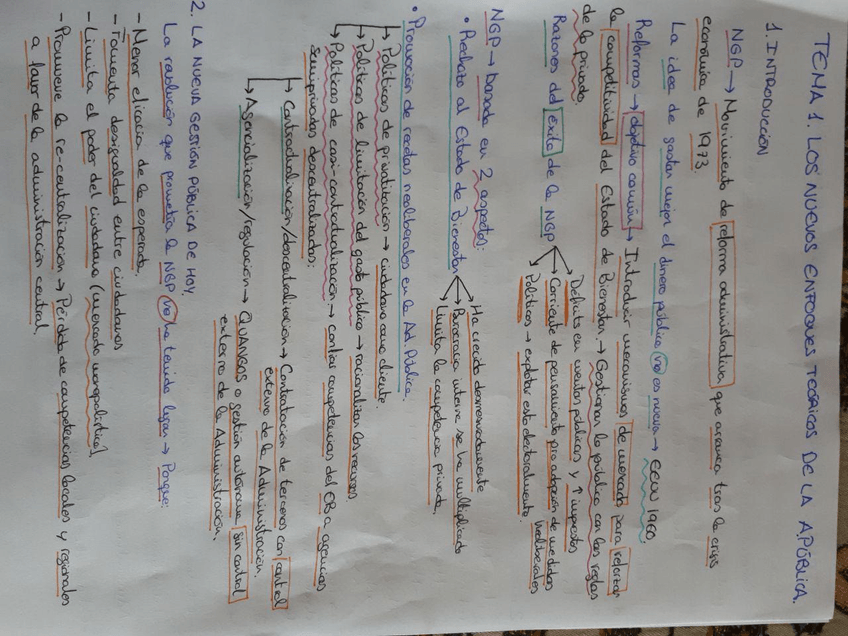 TEMA 1. LOS NUEVOS ENFOQUES TEÓRICOS DE LA A.PÚBLICA.
1. INTRODUCCIÓN
NGP → Movimiento de reforma administrativa, que arranca tras la crisis
económica de 1973.
La idea de gastar mejor el dinero público no es nueva → EEUU 1960.
Reformas → objetivo común → Introducir mecanismos de mercado para reforzar
la competitividad del Estado de Bienestar. → Gestionar lo público con las reglas
de lo privado.
Razones del éxito de la NGP
Déficits en cuentas públicas y ↑ impuestos
Corriente de pensamiento pro adopción de medidas neoliberales
Políticos → explotar esto electoralmente.
NGP → basada en 2 aspectos:
• Rechazo al Estado de Bienestar
Ha crecido desmesuradamente
Burocracia interna se ha multiplicado
Limita la competencia privada.
• Promoción de recetas neoliberales en la Ad. Pública.
→ Políticas de privatización → ciudadano como cliente.
→ Políticas de limitación del gasto público → racionalizar los recursos
→ Políticas de cuasi-contractualización → confiar competencias del EB a agencias
semiprivadas descentralizadas:
→ Contractualización/descentralización → Contratación de terceros con control
externo de la Administración.
→ Agencialización/regulación → QUANGOS o gestión autónoma sin control
externo de la Administración.
2. LA NUEVA GESTIÓN PÚBLICA DE HOY.
La revolución que prometía la NGP no ha tenido lugar → Porque:
- Menor eficacia de la esperada.
- Fomenta desigualdad entre ciudadanos
- Limita el poder del ciudadano (mercado monopolístico)
- Promueve la re-centralización → Pérdida de competencias locales y regionales
a favor de la administración central.